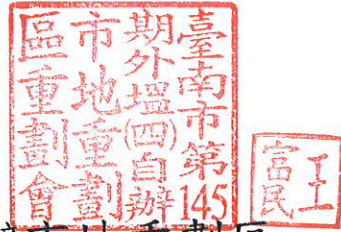 臺南市第145
期外塭(四)自辦
市地重劃
區重劃會
王
富民